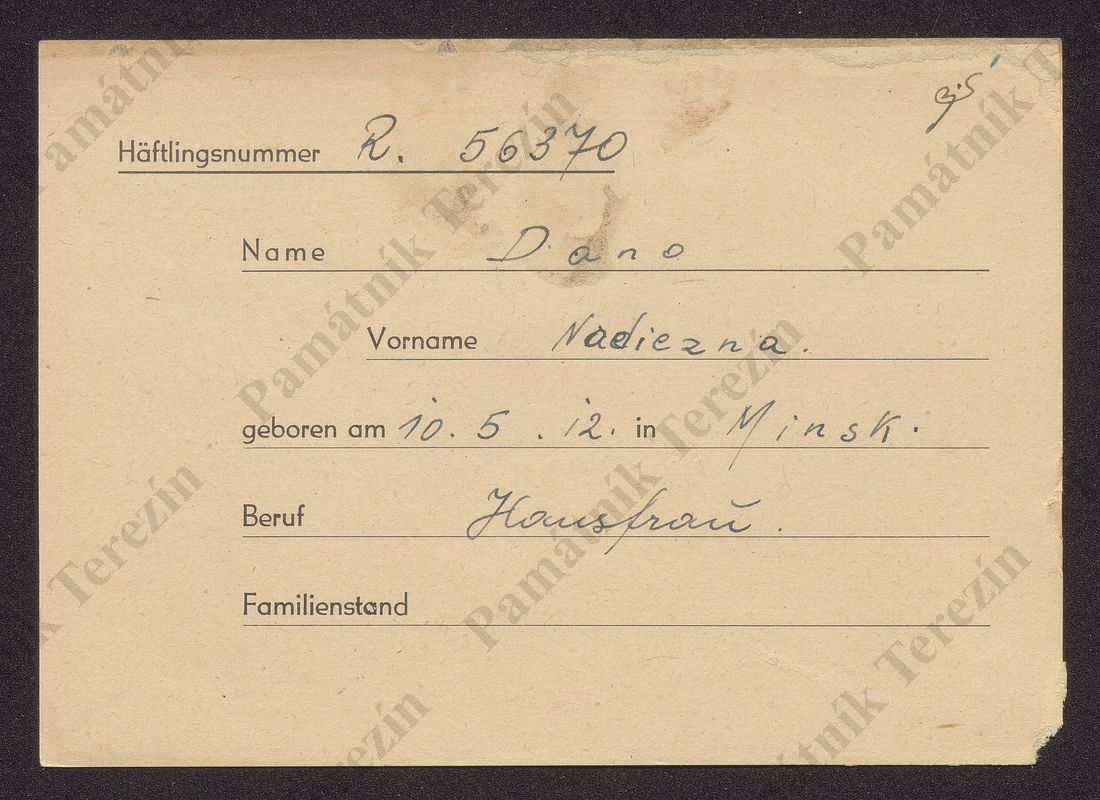 Häftlingsnummer R. 56370
Name Dano
Vorname Nadiezna.
geboren am 10. 5. 12. in Minsk.
Beruf Hausfrau.
Familienstand
Památník Terezín
Památník Terezín
Památník Terezín
Památník Terezín